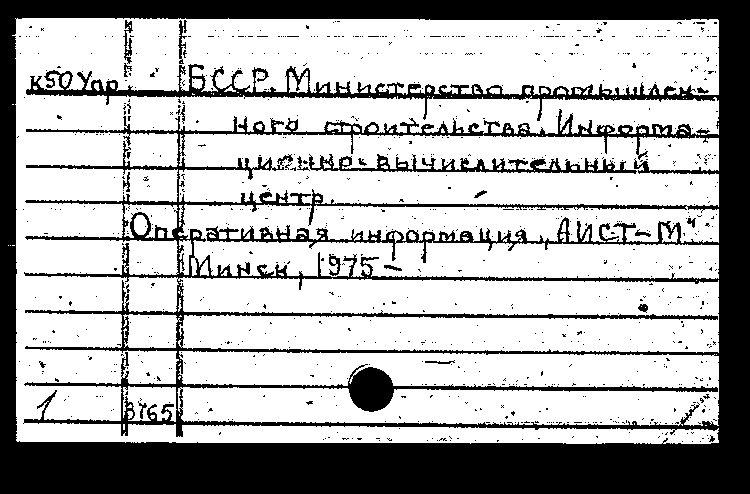 к50Упр БССР. Министерство промышлен-
ного строительства. Информа-
ционно-вычислительный
центр.
Оперативная информация „АИСТ-М"
Минск, 1975 –
1 3765